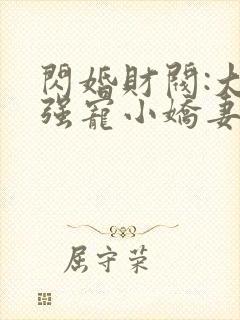 閃婚財閥:大
强寵小嬌妻
屈守荣